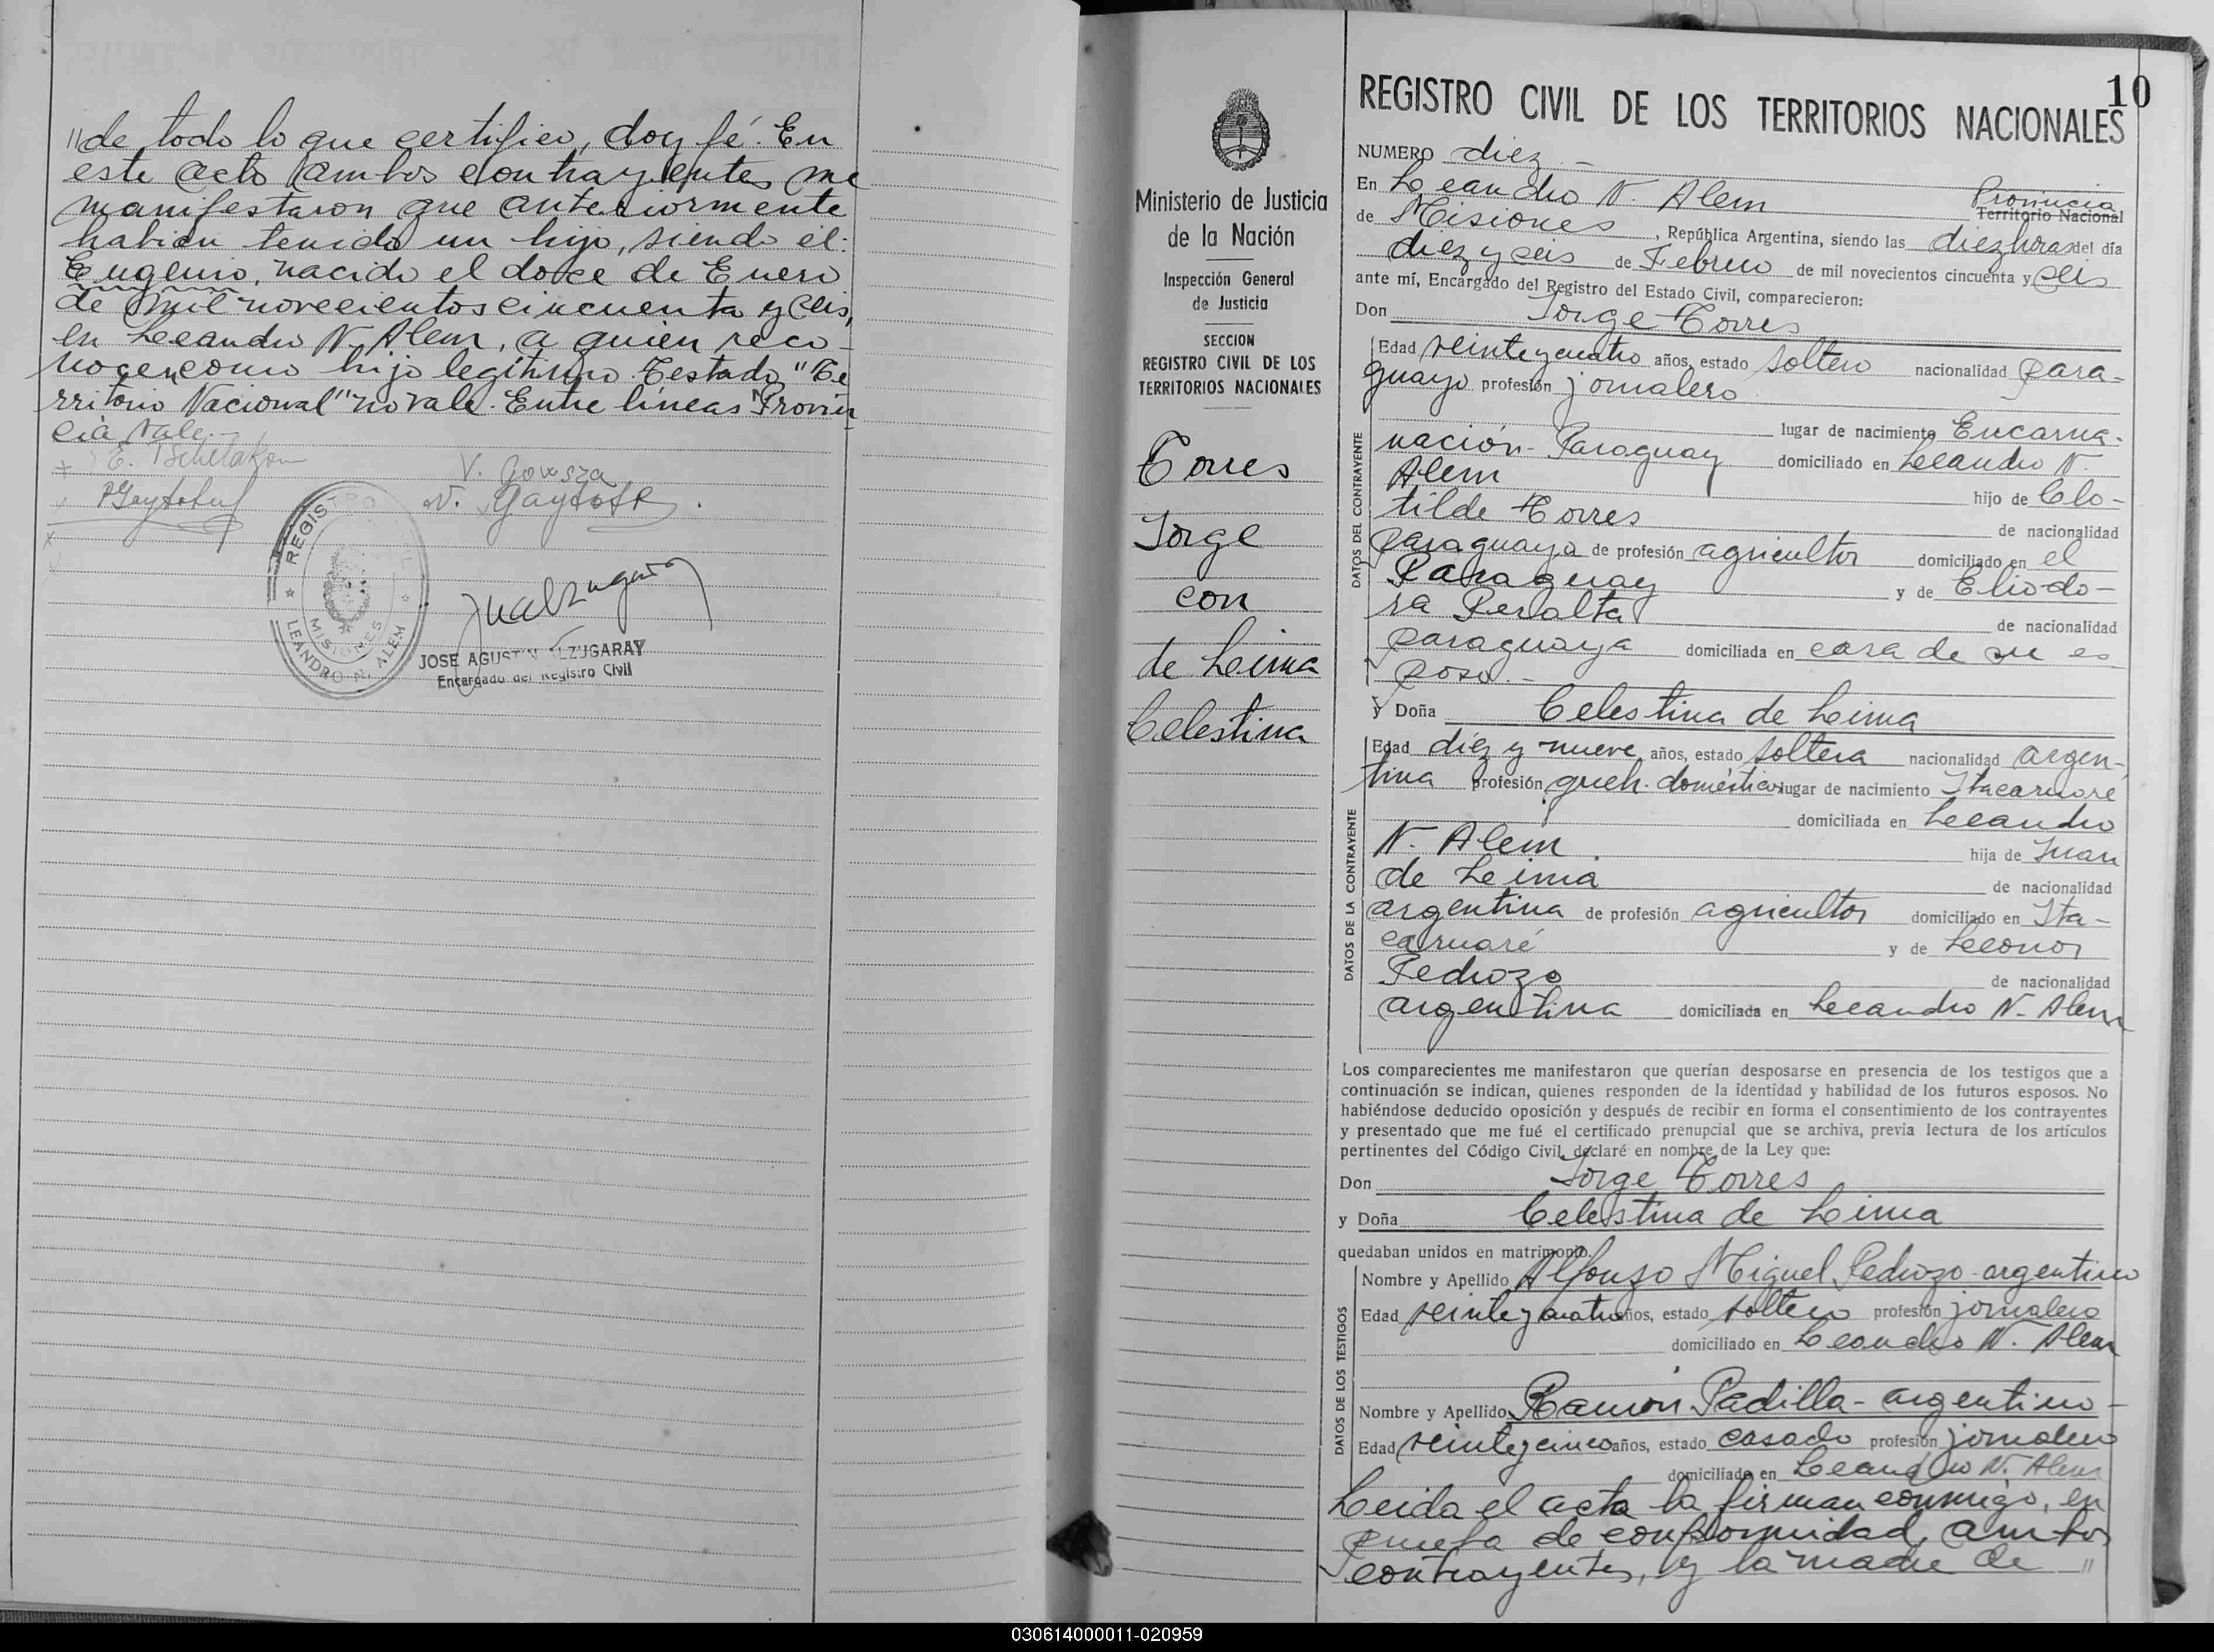 "de todo lo que certifico, doy fé. En
este acto ambos contrayentes me
manifestaron que anteriormente
habían tenido un hijo, siendo él:
Eugenio, nacido el doce de Enero
de mil novecientos cincuenta y seis,
en Leeandro N. Alem, a quien reco-
nocen como hijo legítimo. Testado "Te
rritorio Nacional" no vale. Entre líneas "Provin
cia vale.-
V. Gowsza
REGISTRO CIVIL
MISIONES
LEANDRO N. ALEM
JOSE AGUSTIN ALZUGARAY
Encargado del Registro Civil
Ministerio de Justicia
de la Nación
Inspección General
de Justicia
SECCION
REGISTRO CIVIL DE LOS
TERRITORIOS NACIONALES
Torres
Jorge
con
de Leima
Celestina
10
REGISTRO CIVIL DE LOS TERRITORIOS NACIONALES
NUMERO diez.-
En Leeandro N. Alem Provincia Territorio Nacional
de Misiones, República Argentina, siendo las diez horas del día
diez y seis de Febrero de mil novecientos cincuenta y seis
ante mí, Encargado del Registro del Estado Civil, comparecieron:
Don Jorge Torres
DATOS DEL CONTRAYENTE
Edad veinte y cuatro años, estado soltero nacionalidad para-
guayo profesión jornalero
lugar de nacimiento Encarna-
nación- Paraguay domiciliado en Leeandro N.
Alem hijo de Clo-
tilde Torres de nacionalidad
paraguaya de profesión agricultor domiciliado en el
Paraguay y de Eliodo-
ra Peralta de nacionalidad
paraguaya domiciliada en casa de su es
poso.-
y Doña Celestina de Leima
DATOS DE LA CONTRAYENTE
Edad diez y nueve años, estado soltera nacionalidad argen-
tina profesión queh. domésticos lugar de nacimiento Itacaruaré
domiciliada en Leeandro
N. Alem. hija de Juan
de Leima de nacionalidad
argentina de profesión agricultor domiciliado en Ita-
caruaré y de Leeonor
Pedrozo de nacionalidad
argentina domiciliada en Leeandro N. Alem
Los comparecientes me manifestaron que querían desposarse en presencia de los testigos que a
continuación se indican, quienes responden de la identidad y habilidad de los futuros esposos. No
habiéndose deducido oposición y después de recibir en forma el consentimiento de los contrayentes
y presentado que me fué el certificado prenupcial que se archiva, previa lectura de los artículos
pertinentes del Código Civil, declaré en nombre de la Ley que:
Don Jorge Torres
y Doña Celestina de Leima
quedaban unidos en matrimonio.
DATOS DE LOS TESTIGOS
Nombre y Apellido Alfonzo Miguel Pedrozo-argentino
Edad veinte y cuatro años, estado soltero profesión jornalero
domiciliado en Leeandro N. Alem
Nombre y Apellido Ramón Padilla- argentino-
Edad veinte y cinco años, estado casado profesión jornalero
domiciliado en Leeandro N. Alem
Leida el acta la firman conmigo, en
prueba de conformidad, ambos
contrayentes, y la madre de "
030614000011-020959